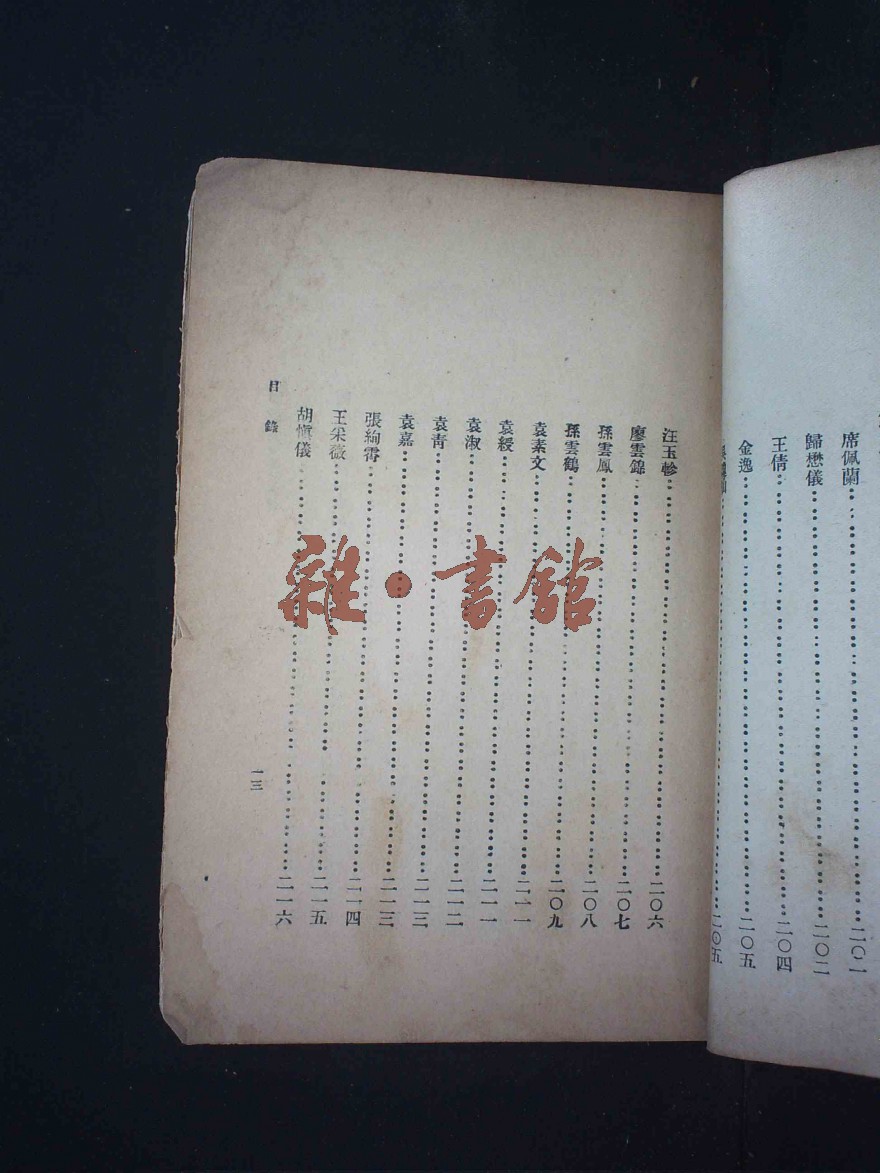 席佩蘭 二〇一
歸懋儀 二〇二
王倩 二〇四
金逸 二〇五
二〇五
汪玉軫 二〇六
廖雲錦 二〇七
孫雲鳳 二〇八
孫雲鶴 二〇九
袁素文 二一一
袁綬 二一一
袁淑 二一二
袁青 二一三
袁嘉 二一三
張絢霄 二一四
王采薇 二一五
胡愼儀 二一六
目錄
一三
雜·書館